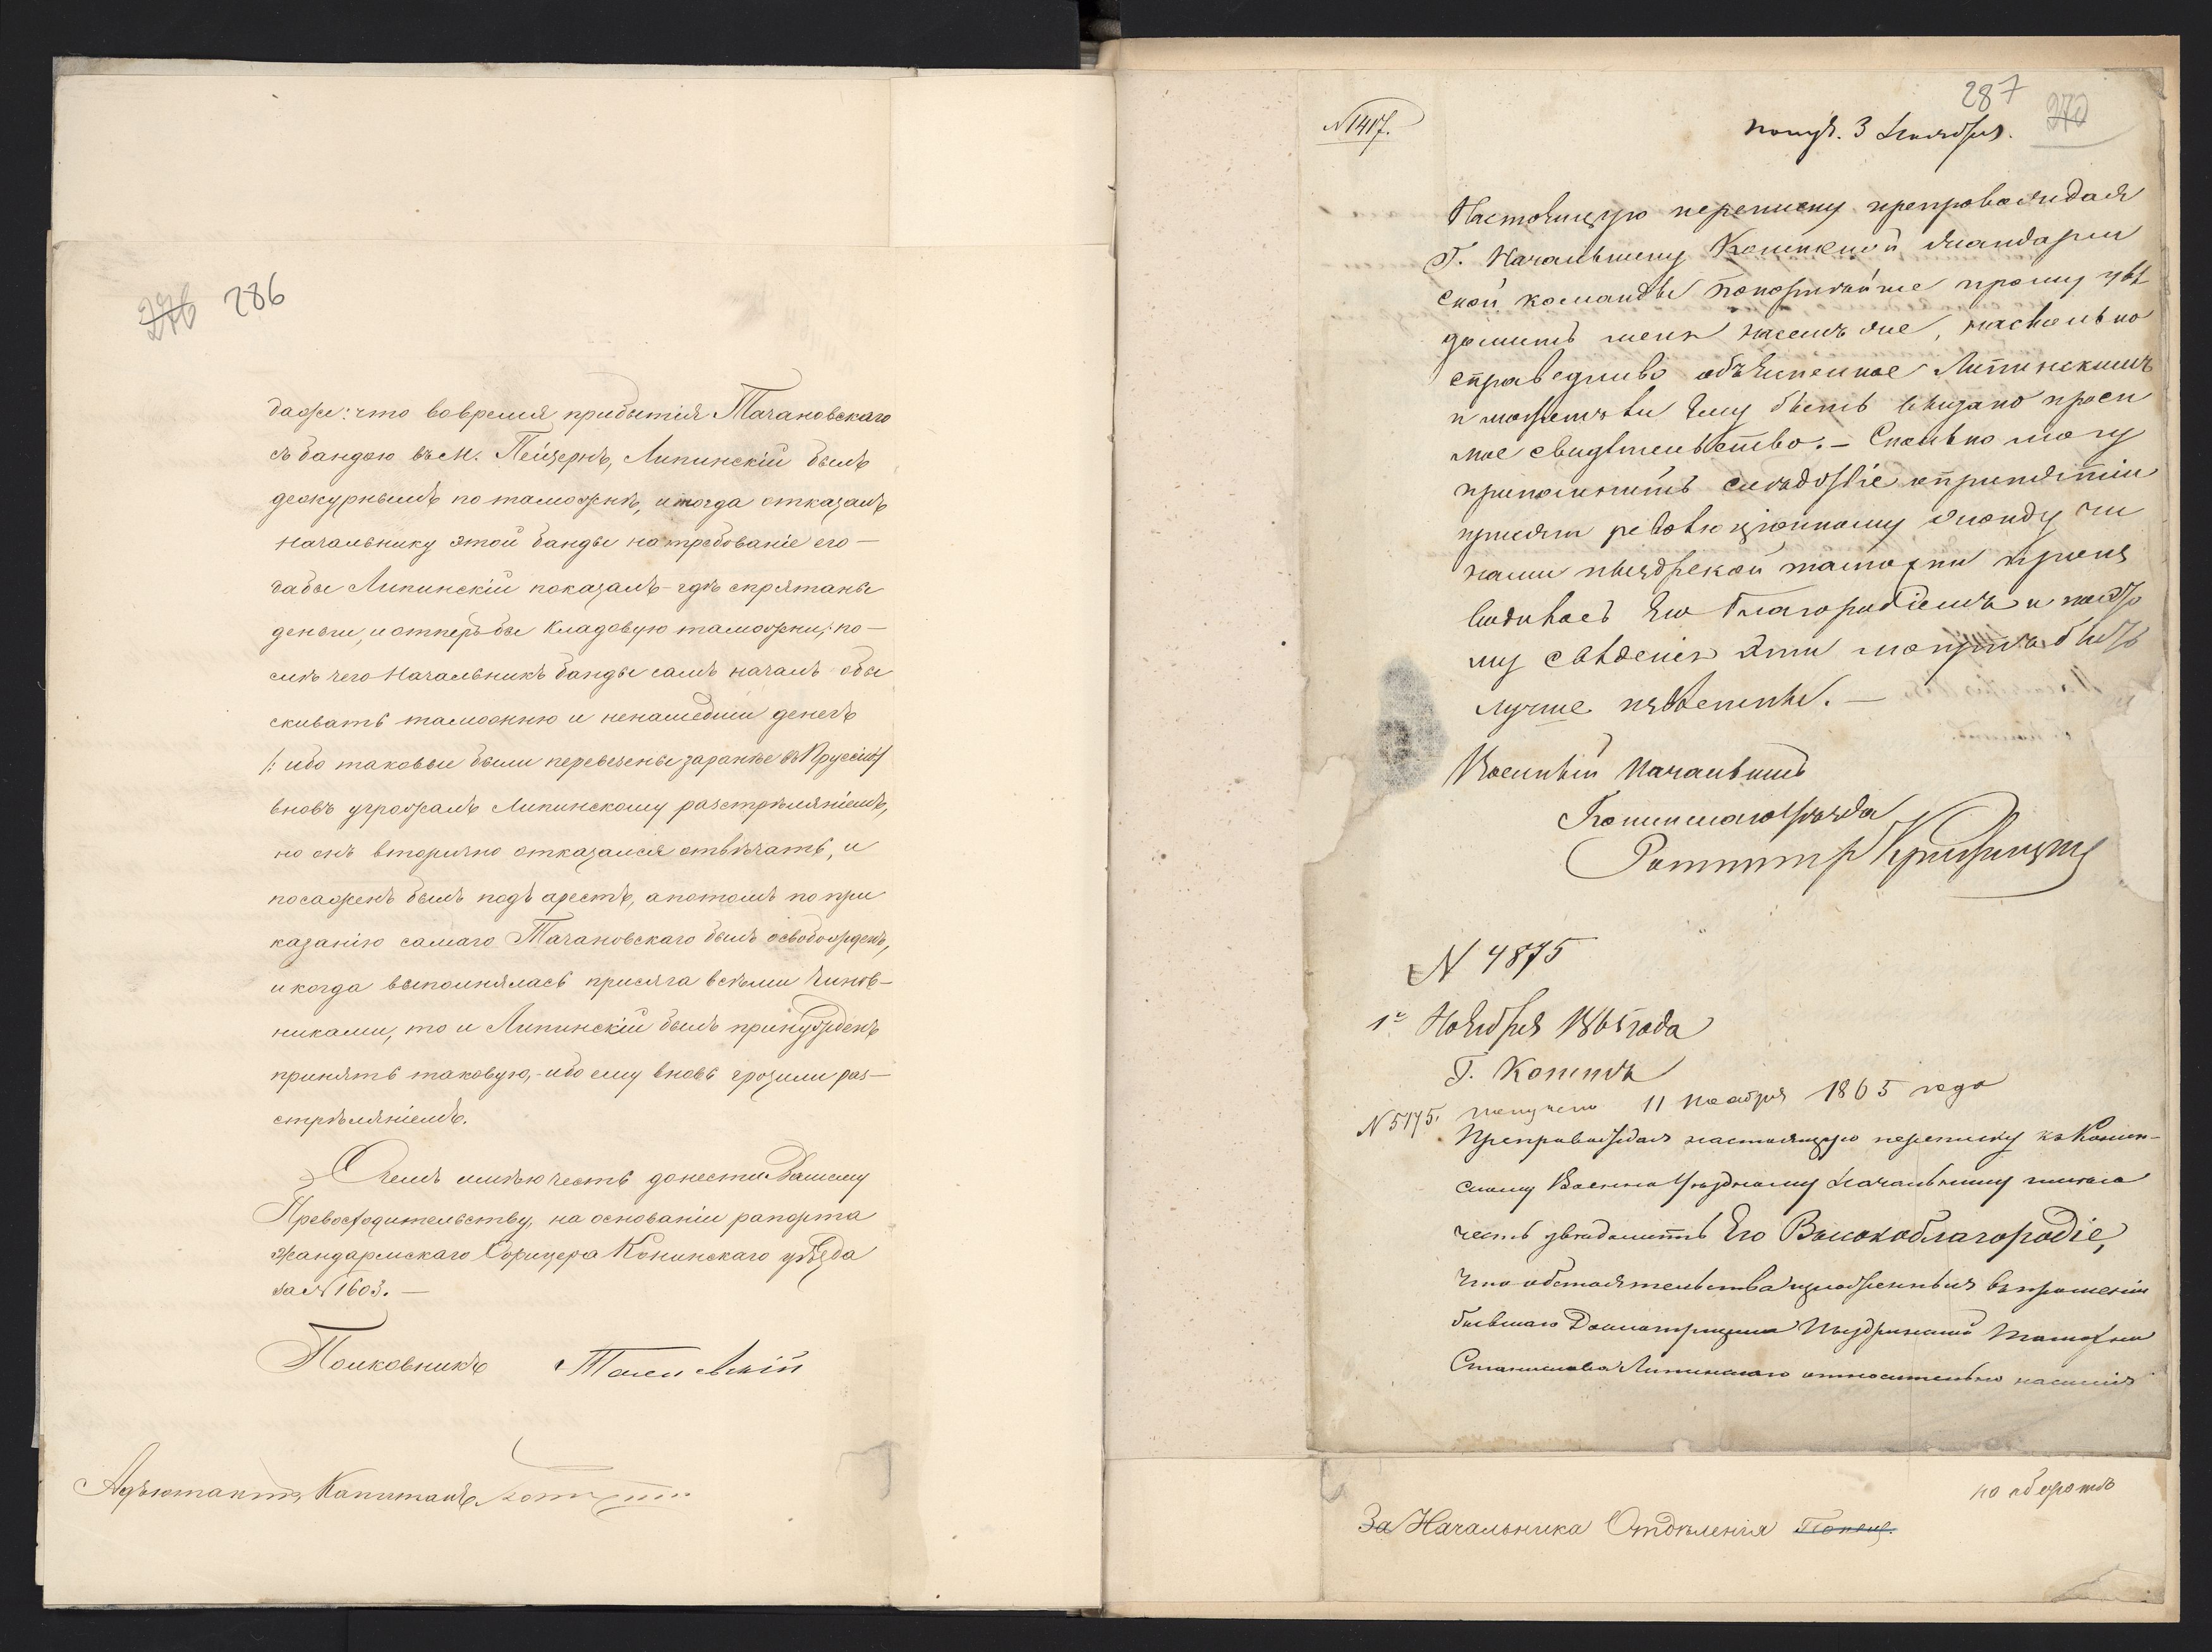 286
даже: что вовремя прибытія Тачановскаго
съ бандою въ м. Пейзернъ, Липинскій былъ
дежурнымъ по таможнѣ, и тогда отказалъ
начальнику этой банды на требованіе его —
дабы Липинскій показалъ — гдѣ спрятаны
деньги, и отперъ бы кладовую таможни; по —
слѣ чего Начальникъ банды самъ началъ обы
скивать таможню и ненашедши денегъ
/: ибо таковые были перевезены заранѣе въ Пруссію :/
вновь угрожалъ Липинскому разстрѣляніемъ,
но онъ вторично отказался отвѣчать, и
посаженъ былъ подъ арестъ, а потомъ по при
казанію самаго Тачановскаго былъ освобожденъ,
и когда выполнялась присяга всѣми чинов-
никами, то и Липинскій былъ принужденъ
принять таковую, - ибо ему вновь грозили раз —
стрѣляніемъ.
О чемъ имѣю честь донести Вашему
Превосходительству, на основаніи рапорта
жандармскаго Офицера Конинскаго уѣзда
за № 1603. —
Полковникъ
Адъютантъ, Капитанъ
287
№ 1417.
получ. 3 Ноября.
Настоящую переписку препровождая
Г. Начальнику Конинской жандарм
ской команды покорнѣйше прошу увѣ
домить меня на семъ же, насколько
справедливо объясненное Липинскимъ
и можетъ ли ему быть выдано проси
мое свидѣтельство. — Сколько могу
припомнить слѣдствіе о принятіи
присяги революціонному жонду чи
нами пыздрской таможни произ
водилось Его Благородіемъ и пото
му свѣденія эти могутъ быть
лучше извѣстны. —
Военный Начальникъ
Конинскаго уѣзда
Ротмистр
№ 4875
1го Ноября 1865 года
Г. Конинъ
№ 5175. получено 11 Ноября 1865 года
Препровождая настоящую переписку къ Конин-
скому Военно Уѣздному Начальнику имѣю
честь увѣдомить Его Высокоблагородіе,
что обстоятельства изложенныя въ прошеніи
бывшаго Досмотрщика Пыздринской Таможни
Станислава Липинскаго относительно насилія
на оборотѣ
За Начальника Отдѣленія